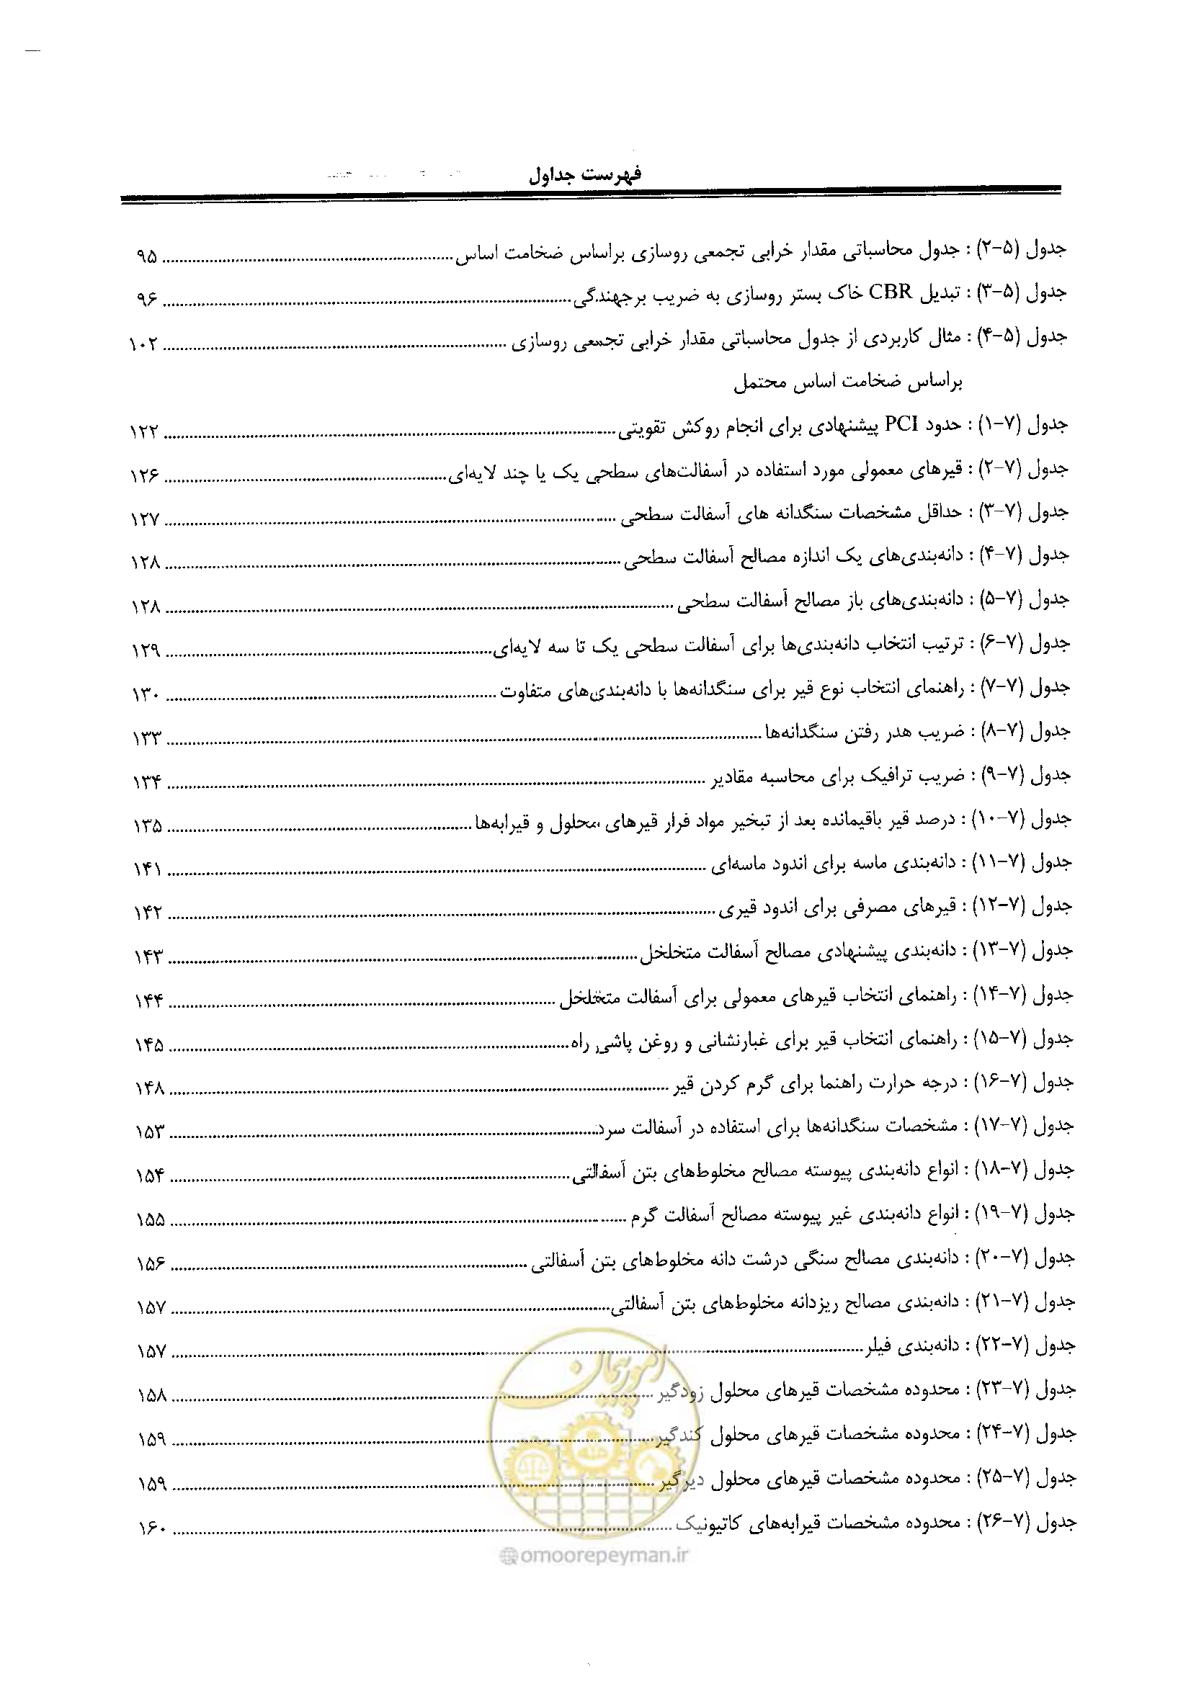 فهرست جداول
جدول (۵-۲) : جدول محاسباتی مقدار خرابی تجمعی روسازی براساس ضخامت اساس ........ ۹۵
جدول (۵-۳) : تبدیل CBR خاک بستر روسازی به ضریب برجهندگی ........ ۹۶
جدول (۵-۴) : مثال کاربردی از جدول محاسباتی مقدار خرابی تجمعی روسازی ........ ۱۰۲
براساس ضخامت اساس محتمل
جدول (۷-۱) : حدود PCI پیشنهادی برای انجام روکش تقویتی ........ ۱۲۲
جدول (۷-۲) : قیرهای معمولی مورد استفاده در آسفالت‌های سطحی یک یا چند لایه‌ای ........ ۱۲۶
جدول (۷-۳) : حداقل مشخصات سنگدانه های آسفالت سطحی ........ ۱۲۷
جدول (۷-۴) : دانه‌بندی‌های یک اندازه مصالح آسفالت سطحی ........ ۱۲۸
جدول (۷-۵) : دانه‌بندی‌های باز مصالح آسفالت سطحی ........ ۱۲۸
جدول (۷-۶) : ترتیب انتخاب دانه‌بندی‌ها برای آسفالت سطحی یک تا سه لایه‌ای ........ ۱۲۹
جدول (۷-۷) : راهنمای انتخاب نوع قیر برای سنگدانه‌ها با دانه‌بندی‌های متفاوت ........ ۱۳۰
جدول (۷-۸) : ضریب هدر رفتن سنگدانه‌ها ........ ۱۳۳
جدول (۷-۹) : ضریب ترافیک برای محاسبه مقادیر ........ ۱۳۴
جدول (۷-۱۰) : درصد قیر باقیمانده بعد از تبخیر مواد فرار قیرهای محلول و قیرابه‌ها ........ ۱۳۵
جدول (۷-۱۱) : دانه‌بندی ماسه برای اندود ماسه‌ای ........ ۱۴۱
جدول (۷-۱۲) : قیرهای مصرفی برای اندود قیری ........ ۱۴۲
جدول (۷-۱۳) : دانه‌بندی پیشنهادی مصالح آسفالت متخلخل ........ ۱۴۳
جدول (۷-۱۴) : راهنمای انتخاب قیرهای معمولی برای آسفالت متخلخل ........ ۱۴۴
جدول (۷-۱۵) : راهنمای انتخاب قیر برای غبارنشانی و روغن پاشی راه ........ ۱۴۵
جدول (۷-۱۶) : درجه حرارت راهنما برای گرم کردن قیر ........ ۱۴۸
جدول (۷-۱۷) : مشخصات سنگدانه‌ها برای استفاده در آسفالت سرد ........ ۱۵۳
جدول (۷-۱۸) : انواع دانه‌بندی پیوسته مصالح مخلوط‌های بتن آسفالتی ........ ۱۵۴
جدول (۷-۱۹) : انواع دانه‌بندی غیر پیوسته مصالح آسفالت گرم ........ ۱۵۵
جدول (۷-۲۰) : دانه‌بندی مصالح سنگی درشت دانه مخلوط‌های بتن آسفالتی ........ ۱۵۶
جدول (۷-۲۱) : دانه‌بندی مصالح ریزدانه مخلوط‌های بتن آسفالتی ........ ۱۵۷
جدول (۷-۲۲) : دانه‌بندی فیلر ........ ۱۵۷
جدول (۷-۲۳) : محدوده مشخصات قیرهای محلول زودگیر ........ ۱۵۸
جدول (۷-۲۴) : محدوده مشخصات قیرهای محلول کندگیر ........ ۱۵۹
جدول (۷-۲۵) : محدوده مشخصات قیرهای محلول دیرگیر ........ ۱۵۹
جدول (۷-۲۶) : محدوده مشخصات قیرابه‌های کاتیونیک ........ ۱۶۰
امور پیمان
@omoorepeyman.ir